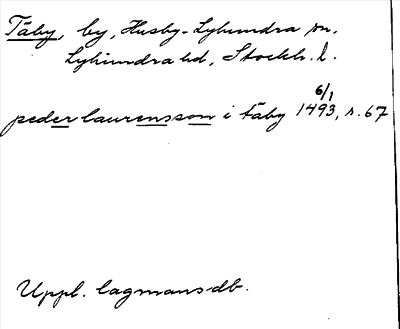 Täby, by, Husby-Lyhundra sn.
Lyhundra hd, Stockh. l.
6/1
peder laurensson i täby 1493, s. 67
Uppl. lagmansdb.